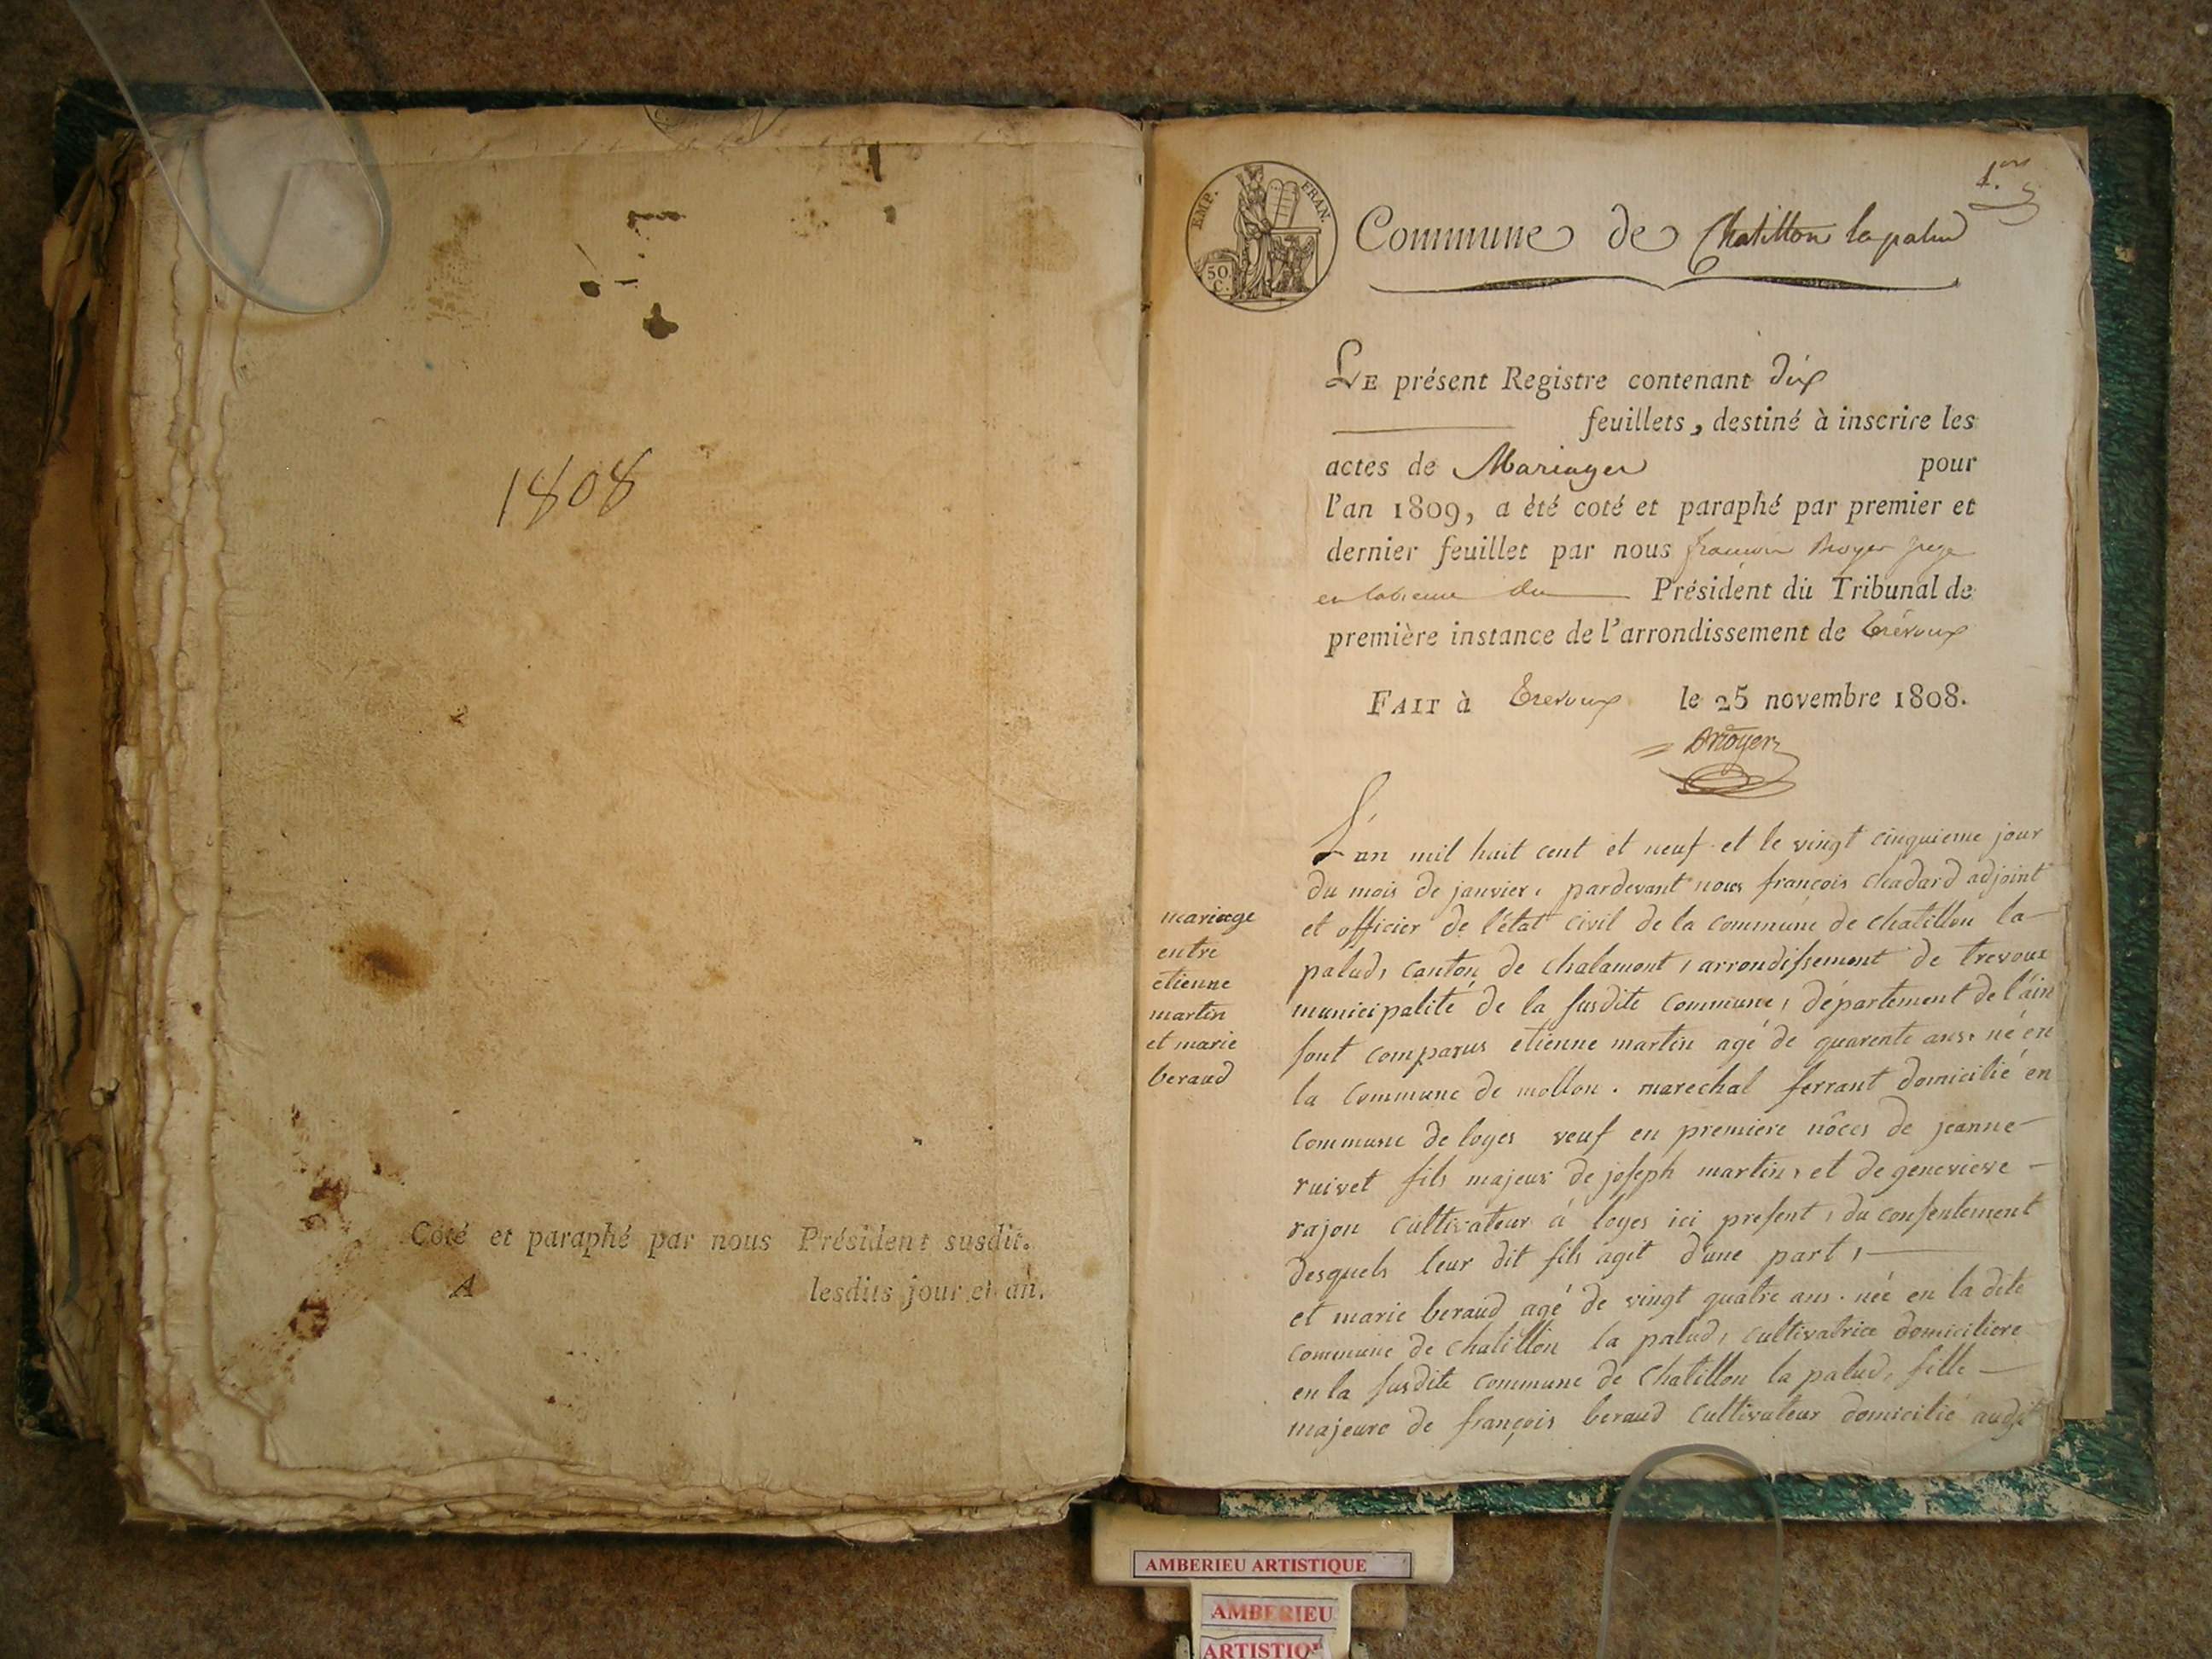 1808
Coté et paraphé par nous Président susdit.
A lesdits jour et an.
1.er
EMP. FRAN.
50
C.
Commune de Chatillon la palud
LE présent Registre contenant dix
feuillets, destiné à inscrire les
actes de Mariages pour
l'an 1809, a été coté et paraphé par premier et
dernier feuillet par nous françois Broyer juge
en labsence du Président du Tribunal de
première instance de l'arrondissement de Trévoux
FAIT à Trevoux le 25 novembre 1808.
Broyer
mariage
entre
etienne
martin
et marie
beraud
L'an mil huit cent et neuf et le vingt cinquieme jour
du mois de janvier, pardevant nous françois chadard adjoint
et officier de l'état civil de la commune de chatillon la
palud, canton de chalamont, arrondissement de trevoux
municipalité de la susdite commune, département de l'ain
sont comparus etienne martin agé de quarente ans, né en
la commune de mollon. marechal ferrant domicilié en
commune de loyes veuf en premiere nôces de jeanne
ruivet fils majeur de joseph martin, et de genevieve
rajon cultivateur à loyes ici present, du consentement
desquels leur dit fils agit d'une part,
et marie beraud agé de vingt quatre ans. née en la dite
commune de chatillon la palud, cultivatrice domiciliere
en la susdite commune de chatillon la palud, fille
majeure de françois beraud cultivateur domicilié audit
AMBERIEU ARTISTIQUE
AMBERIEU
ARTISTIQU